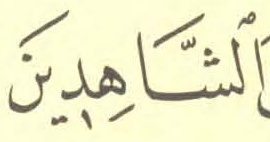 ٱلْشَّاهِدِينَ